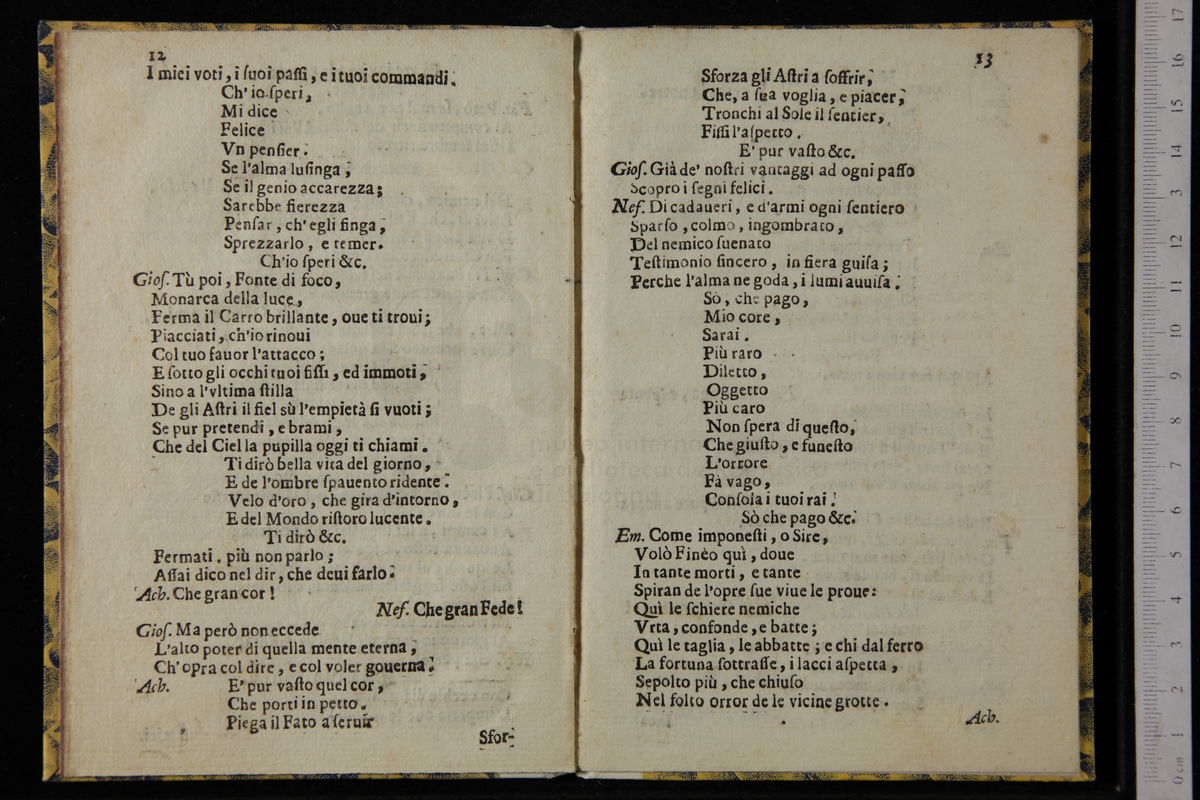 12
I miei voti, i ſuoi paſſi, e i tuoi commandi.
Ch'io ſperi,
Mi dice
Felice
Vn penſier.
Se l'alma luſinga,
Se il genio accarezza;
Sarebbe fierezza
Penſar, ch'egli finga,
Sprezzarlo, e temer.
Ch'io ſperi &c.
Gioſ. Tù poi, Fonte di foco,
Monarca della luce,
Ferma il Carro brillante, oue ti troui;
Piacciati, ch'io rinoui
Col tuo fauor l'attacco;
E ſotto gli occhi tuoi fiſſi, ed immoti,
Sino a l'vltima ſtilla
De gli Aſtri il fiel sù l'empietà ſi vuoti;
Se pur pretendi, e brami,
Che del Ciel la pupilla oggi ti chiami.
Ti dirò bella vita del giorno,
E de l'ombre ſpauento ridente.
Velo d'oro, che gira d'intorno,
E del Mondo riſtoro lucente.
Ti dirò &c.
Fermati. più non parlo;
Aſſai dico nel dir, che deui farlo.
Ach. Che gran cor!
Nef. Che gran Fede!
Gioſ. Ma però non eccede
L'alto poter di quella mente eterna,
Ch'opra col dire, e col voler gouerna.
Ach. E' pur vaſto quel cor,
Che porti in petto.
Piega il Fato a ſeruir
Sfor-
13
Sforza gli Aſtri a ſoffrir,
Che, a ſua voglia, e piacer,
Tronchi al Sole il ſentier,
Fiſſi l'aſpetto.
E' pur vaſto &c.
Gioſ. Già de' noſtri vantaggi ad ogni paſſo
Scopro i ſegni felici.
Nef. Di cadaueri, e d'armi ogni ſentiero
Sparſo, colmo, ingombrato,
Del nemico ſuenato
Teſtimonio ſincero, in fiera guiſa;
Perche l'alma ne goda, i lumi auuiſa.
Sò, che pago,
Mio core,
Sarai.
Più raro
Diletto,
Oggetto
Più caro
Non ſpera di queſto,
Che giuſto, e funeſto
L'orrore
Fà vago,
Conſola i tuoi rai.
Sò che pago &c.
Em. Come imponeſti, o Sire,
Volò Finèo quì, doue
In tante morti, e tante
Spiran de l'opre ſue viue le proue:
Quì le ſchiere nemiche
Vrta, confonde, e batte;
Quì le taglia, le abbatte; e chi dal ferro
La fortuna ſottraſſe, i lacci aſpetta,
Sepolto più, che chiuſo
Nel folto orror de le vicine grotte.
Ach.